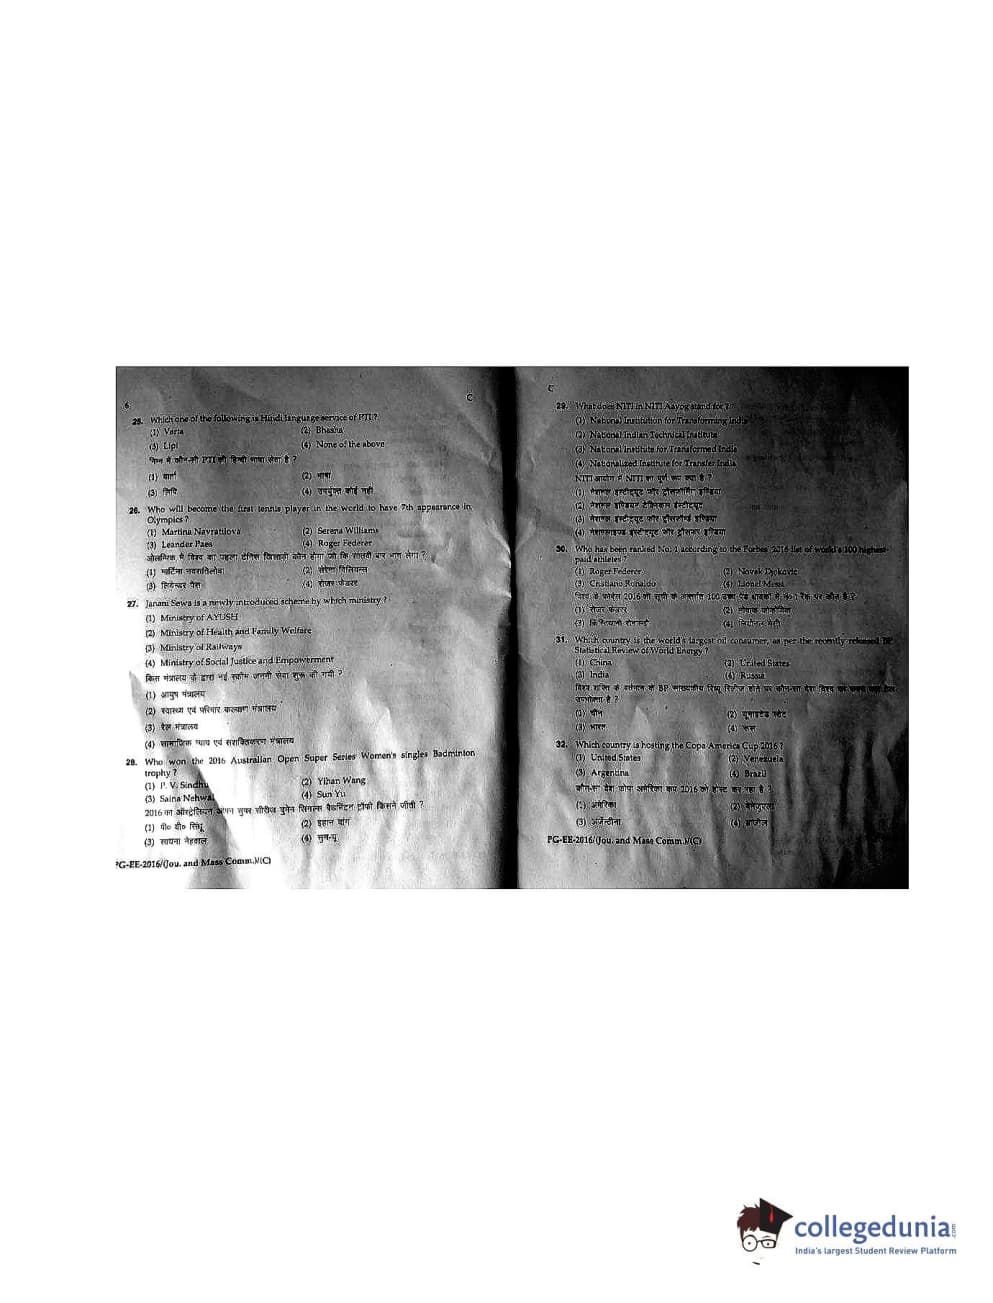 6
C
25. Which one of the following is Hindi language service of PTI ?
(1) Varta
(2) Bhasha
(3) Lipi
(4) None of the above
निम्न में कौन-सी PTI की हिन्दी भाषा सेवा है ?
(1) वार्ता
(2) भाषा
(3) लिपि
(4) उपर्युक्त कोई नहीं
26. Who will become the first tennis player in the world to have 7th appearance in
Olympics ?
(1) Martina Navratilova
(2) Serena Williams
(3) Leander Paes
(4) Roger Federer
ओलम्पिक में विश्व का पहला टेनिस खिलाड़ी कौन होगा जो कि सातवीं बार भाग लेगा ?
(1) मार्टिना नवरातिलोवा
(2) सेरेना विलियम्स
(3) लिएन्डर पैस
(4) रोजर फेडरर
27. Janani Sewa is a newly introduced scheme by which ministry ?
(1) Ministry of AYUSH
(2) Ministry of Health and Family Welfare
(3) Ministry of Railways
(4) Ministry of Social Justice and Empowerment
किस मंत्रालय के द्वारा नई स्कीम जननी सेवा शुरू की गयी ?
(1) आयुष मंत्रालय
(2) स्वास्थ्य एवं परिवार कल्याण मंत्रालय
(3) रेल मंत्रालय
(4) सामाजिक न्याय एवं सशक्तिकरण मंत्रालय
28. Who won the 2016 Australian Open Super Series Women's singles Badminton
trophy ?
(1) P. V. Sindhu
(2) Yihan Wang
(3) Saina Nehwal
(4) Sun Yu
2016 का ऑस्ट्रेलियन ओपन सुपर सीरीज वुमेन सिंगल्स बैडमिंटन ट्रॉफी किसने जीती ?
(1) पी० वी० सिंधू
(2) इहान वांग
(3) सायना नेहवाल
(4) सुन-यू
PG-EE-2016/(Jou. and Mass Comm.)/(C)
C
29. What does NITI in NITI Aayog stand for ?
(1) National Institution for Transforming India
(2) National Indian Technical Institute
(3) National Institute for Transformed India
(4) Nationalized Institute for Transfer India
NITI आयोग में NITI का पूर्ण रूप क्या है ?
(1) नेशनल इंस्टीट्यूट फॉर ट्रांसफॉर्मिंग इण्डिया
(2) नेशनल इण्डियन टेक्निकल इंस्टीट्यूट
(3) नेशनल इंस्टीट्यूट फॉर ट्रांसफॉर्मड इण्डिया
(4) नेशनलाइज्ड इंस्टीट्यूट फॉर ट्रांसफर इण्डिया
30. Who has been ranked No. 1 according to the Forbes' 2016 list of world's 100 highest-
paid athletes ?
(1) Roger Federer
(2) Novak Djokovic
(3) Cristiano Ronaldo
(4) Lionel Messi
विश्व के फोर्बस 2016 की सूची के अन्तर्गत 100 उच्च पेड धावकों में नं० 1 रैंक पर कौन है ?
(1) रोजर फेडरर
(2) नोवाक जोकोविक
(3) क्रिस्टियानो रोनाल्डो
(4) लियोनल मेसी
31. Which country is the world's largest oil consumer, as per the recently released BP
Statistical Review of World Energy ?
(1) China
(2) United States
(3) India
(4) Russia
विश्व शक्ति के वर्तमान के BP सांख्यिकीय रिव्यु रिलीज होने पर कौन-सा देश विश्व का
उपभोक्ता है ?
(1) चीन
(2) यूनाइटेड स्टेट
(3) भारत
(4) रूस
32. Which country is hosting the Copa America Cup 2016 ?
(1) United States
(2) Venezuela
(3) Argentina
(4) Brazil
कौन-सा देश कोपा अमेरिका कप 2016 को होस्ट कर रहा है ?
(1) अमेरिका
(2) वेनेजुएला
(3) अर्जेन्टीना
(4) ब्राजील
PG-EE-2016/(Jou. and Mass Comm.)/(C)
collegedunia.com
India's largest Student Review Platform